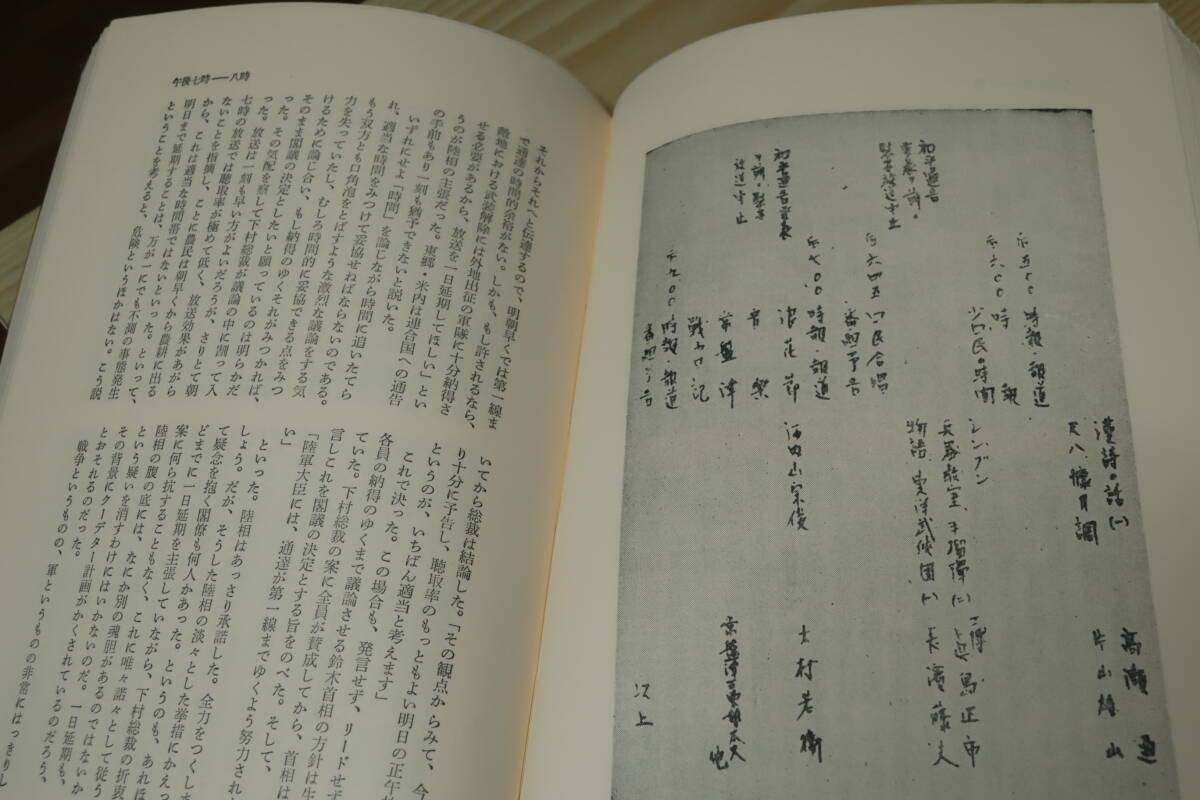 午後七時――八時
それからそれへと伝達するので、明朝早くでは第一線ま
で通達の時間的余裕がない。しかも、もし許されるなら、
敵地における武装解除には外地出征の軍隊に十分納得さ
せる必要があるから、放送を一日延期してほしい」とい
うのが陸相の主張だった。東郷・米内は連合国への通告
の手前もあり一刻も猶予できないと説いた。
いずれにせよ「時間」を論じながら時間に追いたてら
れ、適当な時間をみつけて妥協せねばならないのである。
もう双方とも口角泡をとばすような激烈な議論をする気
力を失っていたし、むしろ時間的に妥協できる点をみつ
けるために論じ合い、もし納得のゆくそれがみつかれば、
そのまま閣議の決定としたいと願っているのは明らかだ
った。その気配を察して下村総裁が議論の中に割って入
った。放送は一刻も早い方がよいだろうが、さりとて朝
七時の放送では聴取率が極めて低く、放送効果があがら
ないことを指摘し、ことに農民は朝早くから農耕に出る
から、これは適当な時間帯ではないといった。といって、
明日まで延期することは、万が一にでも不測の事態発生
ということを考えると、危険というほかはない。こう説
いてから総裁は結論した。「その観点からみて、今
り十分に予告し、聴取率のもっともよい明日の正午
というのが、いちばん適当と考えます」
これで決った。この場合も、発言せず、リードせず
各員の納得のゆくまで議論させる鈴木首相の方針は生
ていた。下村総裁の案に全員が賛成してから、首相は
言しこれを閣議の決定とする旨をのべた。そして、
「陸軍大臣には、通達が第一線までゆくよう努力され
い」
といった。陸相はあっさり承諾した。全力をつくしま
しょう。だが、そうした陸相の淡々とした挙措にかえっ
て疑念を抱く閣僚も何人かあった。というのも、あれほ
どまでに一日延期を主張していながら、下村総裁の折衷
案に何ら抗することもなく、これに唯々諾々として従う
陸相の腹の底には、なにか別の魂胆があるのではないか
という疑いを消すわけにはいかないのだ。一日延期も、
その背景にクーデター計画がかくされているのだろう、
とおそれるのだった。
戦争というものの、軍というものの非常にはっきりし
漢詩の話(一)
高瀬
尺八 櫪月調
片山雄山
后五〇〇 時報・報道
后六〇〇 時報
少国民の時間
シンブン
兵器教室
物語 東洋武侠団
長濱藤夫
后六四五
番組予告
后七〇〇 時報・報道
浪花節
音楽
常盤津
戦山口記
后九〇〇 時報・報道
番組予告
士村若衛
他
以上